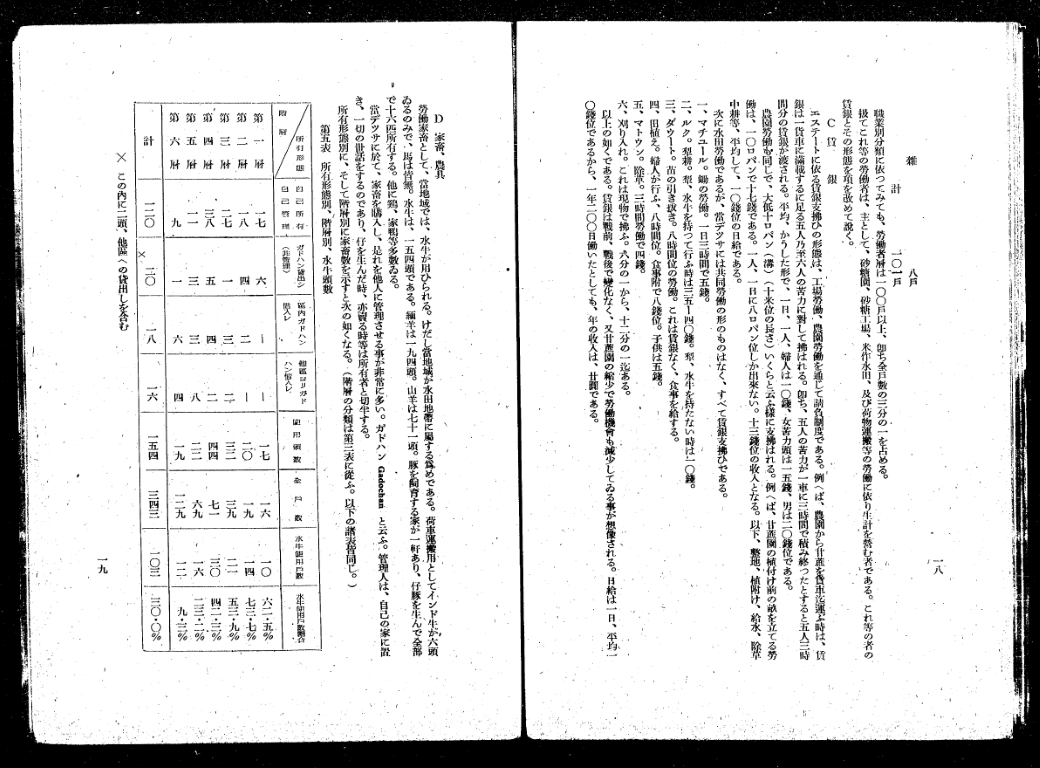 雑 八戸
計 一〇一戸
職業別分類に依つてみても、勞働者層は一〇〇戸以上、卽ち全戸數の三分の一を占める。
扱てこれ等の勞働者は、主として、砂糖園、砂糖工場、米作水田、及び荷物運搬等の勞働に依り生計を營む者である。これ等の者の
賃銀とその形態を項を改めて説く。
C 賃銀
エステートに依る賃銀支拂ひの形態は、工場勞働、農園勞働を通じて請負制度である。例へば、農園から甘蔗を貨車迄運ぶ時は、賃
銀は一貨車に滿載するに足る五人乃至六人の苦力に對して拂はれる。卽ち、五人の苦力が一車に三時間で積み終つたとすると五人三時
間分の賃銀が渡される。平均、かうした形で、一日、一人、婦人は一〇錢、女苦力頭は一五錢、男は二〇錢位である。
農園勞働も同じで、大低十ロバン（溝）（十米位の長さ）いくらと云ふ樣に支拂はれる。例へば、甘蔗園の植付け前の畝を立てる勞
働は、一〇ロバンで十七錢である。一人、一日に八ロバン位しか出來ない。十三錢位の收入となる。以下、整地、植附け、給水、除草
中耕等、平均して、一〇錢位の日給である。
次に水田勞働であるが、當デツサには共同勞働の形のものはなく、すべて賃銀支拂ひである。
一、マチュール。鋤の勞働。一日三時間で五錢。
二、ルク。犁耕。犁、水牛を持つて行ふ時は三五―四〇錢。犁、水牛を持たない時は一〇錢。
三、ダウート。苗の引き拔き。八時間位の勞働。これは賃銀なく、食事を給する。
四、田植え。婦人が行ふ、八時間位。食事附で八錢位。子供は五錢。
五、マトウン。除草。三時間勞働で四錢。
六、刈り入れ。これは現物で拂ふ。六分の一から、十二分の一迄ある。
以上の如くである。賃銀は戰前、戰後で變化なく、又甘蔗園の縮少で勞働機會も減少してゐる事が想像される。日給は一日、平均一
〇錢位であるから、一年二〇〇日働いたとしても、年の收入は、廿圓である。
一八
D 家畜、農具
勞働家畜として、當地域では、水牛が用ひられる。けだし當地域が水田地帶に屬する爲めである。荷車運搬用としてインド牛が六頭
ゐるのみで、馬は皆無。水牛は、一五四頭である。緬羊は一九四頭。山羊は七十一頭。豚を飼育する家が一軒あり、仔豚を生んで全部
で十六匹所有する。他に鷄、家鴨等多數ゐる。
當デツサに於て、家畜を購入し、是れを他人に管理させる事が非常に多い。ガドハン Gadochan と云ふ。管理人は、自己の家に置
き、一切の世話をするのであり、仔を生んだ時、亦賣る時等は所有者と切半する。
所有形態別に、そして階層別に家畜數を示すと次の如くなる。（階層の分類は第三表に從ふ。以下の諸表皆同じ。）
第五表 所有形態別、階層別、水牛頭數
階層 所有形態 自己所有自己管理 ガドハン貸出シ（非管理） 區内ガドハン借入レ 他區ヨリガドハン借入レ 使用頭數 全戸數 水牛使用戸數 水牛使用戸數割合
第一層 一七 六 ― ― 一七 一六 一〇 六二・五％
第二層 一八 四 二 ― 二〇 一九 一四 七三・七％
第三層 二七 一 三 二 三二 三九 二一 五三・九％
第四層 三八 五 四 二 四四 七一 三〇 四二・三％
第五層 一一 三 三 八 二二 六九 一六 二三・二％
第六層 九 一 六 四 一九 一二九 一二 九・三％
計 一二〇 ×二〇 一八 一六 一五四 三四三 一〇三 三〇・〇％
× この内に二頭、他區への貸出しを含む
一九